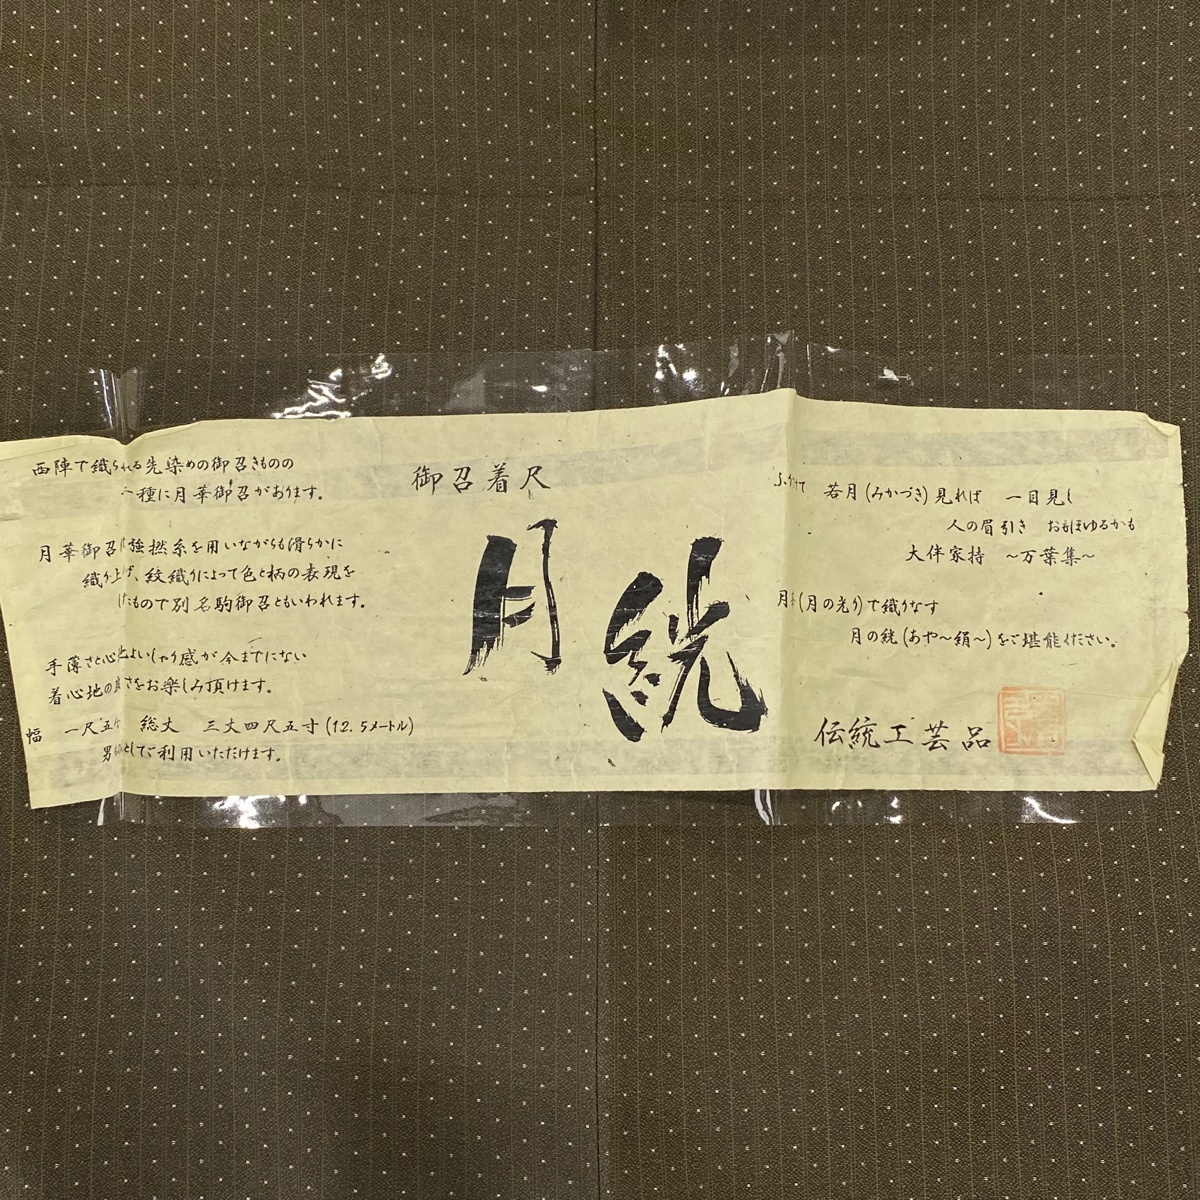 御召着尺
月絖
西陣で織られる先染めの御召きものの
一種に月華御召があります。
月華御召は強撚糸を用いながらも滑らかに
織り上げ、紋織りによって色と柄の表現を
したもので別名駒御召ともいわれます。
手薄さと心地よいしゃり感が今までにない
着心地の良さをお楽しみ頂けます。
幅 一尺五分 総丈 三丈四尺五寸(12.5メートル)
男物としてご利用いただけます。
若月(みかづき)見れば 一目見し
人の眉引き おもほゆるかも
大伴家持 〜万葉集〜
月華(月の光り)で織りなす
月の絖(あや〜絹〜)をご堪能ください。
伝統工芸品